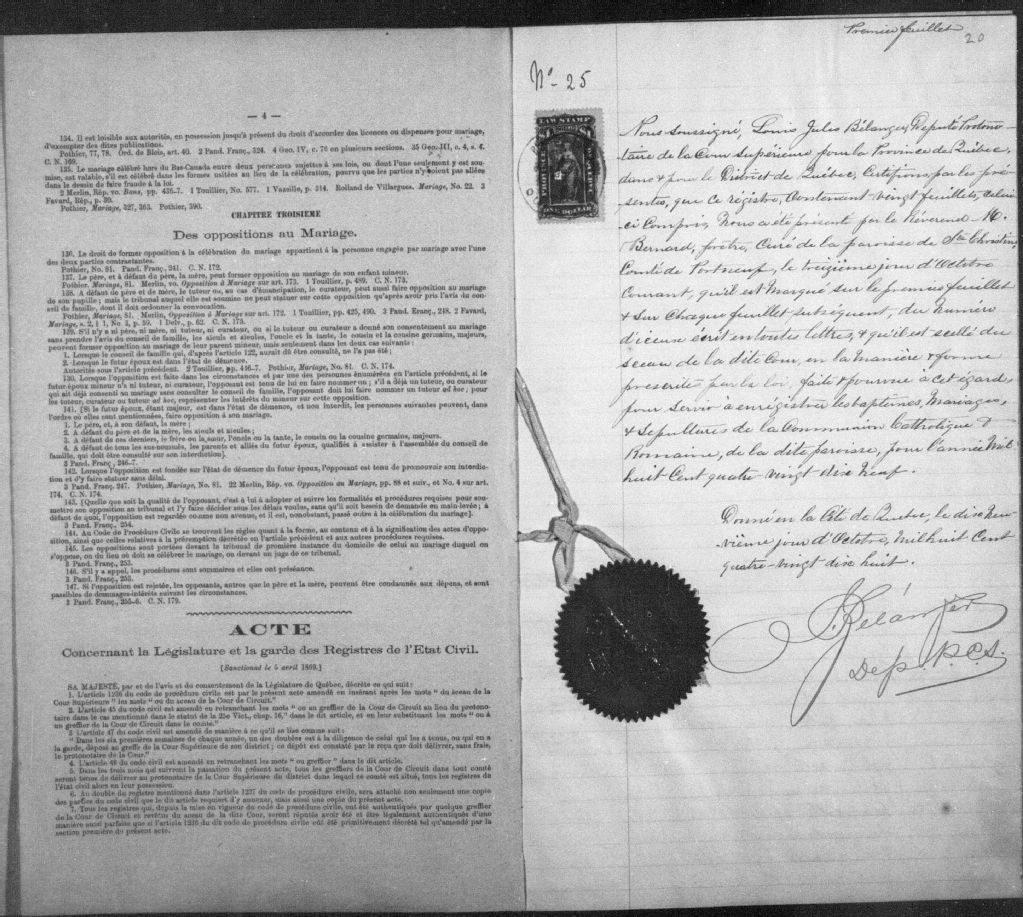 — 4 —
134. Il est loisible aux autorités, en possession jusqu'à présent du droit d'accorder des licences ou dispenses pour mariage,
d'exempter des dites publications.
Pothier, 77, 78. Ord. de Blois, art. 40. 2 Pand. Franç., 324. 4 Geo. IV, c. 76 en plusieurs sections. 35 Geo. III, c. 4, s. 4.
C. N. 169.
135. Le mariage célébré hors du Bas-Canada entre deux personnes sujettes à ses lois, ou dont l'une seulement y est sou-
mise, est valable, s'il est célébré dans les formes usitées au lieu de la célébration, pourvu que les parties n'y soient pas allées
dans le dessin de faire fraude à la loi.
2 Merlin, Rép. vo. Bans, pp. 435-7. 1 Touillier, No. 577. 1 Vazeille, p. 314. Rolland de Villargues. Mariage, No. 22. 3
Favard, Rép., p. 30.
Pothier, Mariage, 327, 363. Pothier, 390.
CHAPITRE TROISIEME
Des oppositions au Mariage.
136. Le droit de former opposition à la célébration du mariage appartient à la personne engagée par mariage avec l'une
des deux parties contractantes.
Pothier, No. 81. Pand. Franç., 241. C. N. 172.
137. Le père, et à défaut du père, la mère, peut former opposition au mariage de son enfant mineur.
Pothier, Mariage, 81. Merlin, vo. Opposition à Mariage sur art. 173. 1 Touillier, p. 489. C. N. 173.
138. A défaut de père et de mère, le tuteur ou, au cas d'émancipation, le curateur, peut aussi faire opposition au mariage
de son pupille; mais le tribunal auquel elle est soumise ne peut statuer sur cette opposition qu'après avoir pris l'avis du con-
seil de famille, dont il doit ordonner la convocation.
Pothier, Mariage, 81. Merlin, Opposition à Mariage sur art. 172. 1 Touillier, pp. 425, 490. 3 Pand. Franç., 248. 2 Favard,
Mariage, s. 2, § 1, No. 3, p. 59. 1 Delv., p. 62. C. N. 175.
139. S'il n'y a ni père, ni mère, ni tuteur, ni curateur, ou si le tuteur ou curateur a donné son consentement au mariage
sans prendre l'avis du conseil de famille, les aïeuls et aïeules, l'oncle et la tante, le cousin et la cousine germains, majeurs,
peuvent former opposition au mariage de leur parent mineur, mais seulement dans les deux cas suivants :
1. Lorsque le conseil de famille qui, d'après l'article 122, aurait dû être consulté, ne l'a pas été ;
2. Lorsque le futur époux est dans l'état de démence.
Autorités sous l'article précédent. 2 Touillier, pp. 416-7. Pothier, Mariage, No. 81. C. N. 174.
140. Lorsque l'opposition est faite dans les circonstances et par une des personnes énumérées en l'article précédent, si le
futur époux mineur n'a ni tuteur, ni curateur, l'opposant est tenu de lui en faire nommer un ; s'il a déjà un tuteur, ou curateur
qui ait déjà consenti au mariage sans consulter le conseil de famille, l'opposant doit lui faire nommer un tuteur ad hoc ; pour
les tuteur, curateur ou tuteur ad hoc, représenter les intérêts du mineur sur cette opposition.
141. [Si le futur époux, étant majeur, est dans l'état de démence, et non interdit, les personnes suivantes peuvent, dans
l'ordre où elles sont mentionnées, faire opposition à son mariage.
1. Le père, et, à son défaut, la mère ;
2. A défaut du père et de la mère, les aïeuls et aïeules ;
3. A défaut de ces derniers, le frère ou la sœur, l'oncle ou la tante, le cousin ou la cousine germains, majeurs.
4. A défaut de tous les sus-nommés, les parents et alliés du futur époux, qualifiés à assister à l'assemblée du conseil de
famille, qui doit être consulté sur son interdiction].
3 Pand. Franç., 246-7.
142. Lorsque l'opposition est fondée sur l'état de démence du futur époux, l'opposant est tenu de promouvoir son interdic-
tion et d'y faire statuer sans délai.
3 Pand. Franç. 247. Pothier, Mariage, No. 81. 22 Merlin, Rép. vo. Opposition au Mariage, pp. 88 et suiv., et No. 4 sur art.
174. C. N. 174.
143. [Quelle que soit la qualité de l'opposant, c'est à lui à adopter et suivre les formalités et procédures requises pour sou-
mettre son opposition au tribunal et l'y faire décider sous les délais voulus, sans qu'il soit besoin de demandes en main-levée ; à
défaut de quoi, l'opposition est regardée comme non avenue, et il est, nonobstant, passé outre à la célébration du mariage].
3 Pand. Franç., 254.
144. Au Code de Procédure Civile se trouvent les règles quant à la forme, au contenu et à la signification des actes d'oppo-
sition, ainsi que celles relatives à la péremption décrétée en l'article précédent et aux autres procédures requises.
145. Les oppositions sont portées devant le tribunal de première instance du domicile de celui au mariage duquel on
s'oppose, ou du lieu où doit se célébrer le mariage, ou devant un juge de ce tribunal.
3 Pand. Franç., 253.
146. S'il y a appel, les procédures sont sommaires et elles ont préséance.
3 Pand. Franç., 253.
147. Si l'opposition est rejetée, les opposants, autres que le père et la mère, peuvent être condamnés aux dépens, et sont
passibles de dommages-intérêts suivant les circonstances.
3 Pand. Franç., 255-6. C. N. 179.
ACTE
Concernant la Législature et la garde des Registres de l'Etat Civil.
[Sanctionné le 5 avril 1869.]
SA MAJESTÉ, par et de l'avis et du consentement de la Législature de Québec, décrète ce qui suit :
1. L'article 1236 du code de procédure civile est par le présent acte amendé en insérant après les mots " du sceau de la
Cour Supérieure " les mots " ou du sceau de la Cour de Circuit."
2. L'article 45 du code civil est amendé en retranchant les mots " ou au greffier de la Cour de Circuit au lieu du protono-
taire dans le cas mentionné dans le statut de la 25e Vict., chap. 16," dans le dit article, et en leur substituant les mots " ou à
un greffier de la Cour de Circuit dans le comté."
3 L'article 47 du code civil est amendé de manière à ce qu'il se lise comme suit :
" Dans les six premières semaines de chaque année, un des doubles est à la diligence de celui qui les a tenus, ou qui en a
la garde, déposé au greffe de la Cour Supérieure de son district ; ce dépôt est constaté par le reçu que doit délivrer, sans frais,
le protonotaire de la Cour."
4. L'article 48 du code civil est amendé en retranchant les mots " ou greffier " dans le dit article.
5. Dans les trois mois qui suivront la passation du présent acte, tous les greffiers de la Cour de Circuit dans tout comté
seront tenus de délivrer au protonotaire de la Cour Supérieure du district dans lequel ce comté est situé, tous les registres de
l'état civil alors en leur possession.
6. Au double du registre mentionné dans l'article 1237 du code de procédure civile, sera attaché non seulement une copie
des parties du code civil que le dit article requiert d'y annexer, mais aussi une copie du présent acte.
7. Tous les registres qui, depuis la mise en vigueur du code de procédure civile, ont été authentiqués par quelque greffier
de la Cour de Circuit et revêtus du sceau de la dite Cour, seront réputés avoir été et être légalement authentiqués d'une
manière aussi parfaite que si l'article 1236 du dit code de procédure civile eût été primitivement décrété tel qu'amendé par la
section première du présent acte.
Premier feuillet
20
No- 25
LAW STAMP
ONE DOLLAR
Nous soussigné, Louis Jules Bélanger, Député Protono-
taire de la Cour Supérieure pour la Province de Québec,
dans & pour le District de Québec, Certifions par les pré-
sentes, que ce régistre, Contenant vingt feuillets, celui-
ci Compris, Nous a été présenté par le Révérend M.
Bernard, prêtre, Curé de la paroisse de Ste Christine,
Comté de Portneuf, le treizième jour d'Octobre
Courant, qu'il est Marqué sur le premier feuillet
& sur Chaque feuillet subséquent, du Numéro
d'iceux écrit en toutes lettres, & qu'il est scellé du
sceau de la dite Cour, en la Manière & forme
prescrite par la loi, faite & pourvue à cet égard,
pour servir à enrégistrer les baptêmes, Mariages,
& Sépultures de la Communion Catholique &
Romaine, de la dite paroisse, pour l'année Mil
huit Cent quatre vingt dix neuf.
Donné en la Cité de Québec, le dix neu-
vième jour d'Octobre, Mil huit Cent
quatre-vingt dix huit.
J. Bélanger
Dep. P.C.S.